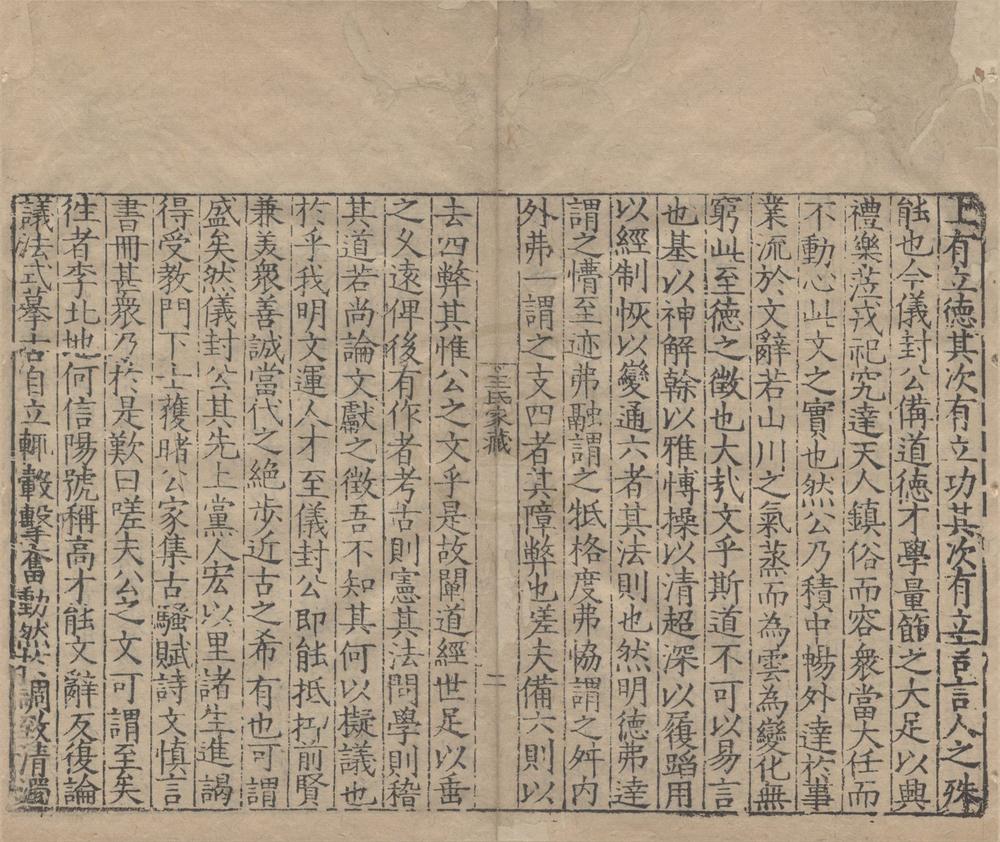 上有立德其次有立功其次有立言言人之殊
能也今儀封公備道德才學量節之大足以興
禮樂蒞戎祀究達天人鎮俗而容衆當大任而
不動心此文之實也然公乃積中暢外達於事
業流於文辭若山川之氣蒸而為雲為變化無
窮此至德之徵也大㢤文乎斯道不可以易言
也基以神解榦以雅愽操以清超深以履蹈用
以經制恢以變通六者其法則也然明德弗達
謂之懵至迹弗融謂之牴格度弗協謂之舛内
外弗一謂之支四者其障弊也嗟夫備六則以
王氏家藏 二
去四弊其惟公之文乎是故闡道經世足以垂
之久遠俾後有作者考古則憲其法問學則稽
其道若尚論文獻之徵吾不知其何以擬議也
於乎我明文運人才至儀封公即能抵抑前賢
兼美衆善誠當代之絶步近古之希有也可謂
盛矣然儀封公其先上黨人宏以里諸生進謁
得受教門下獲睹公家集古騷賦詩文慎言
書冊甚衆乃於是歎曰嗟夫公之文可謂至矣
徃者李北地何信陽號稱高才能文辭反復論
議法式摹古自立輒轂擊奮動然其調致清濁